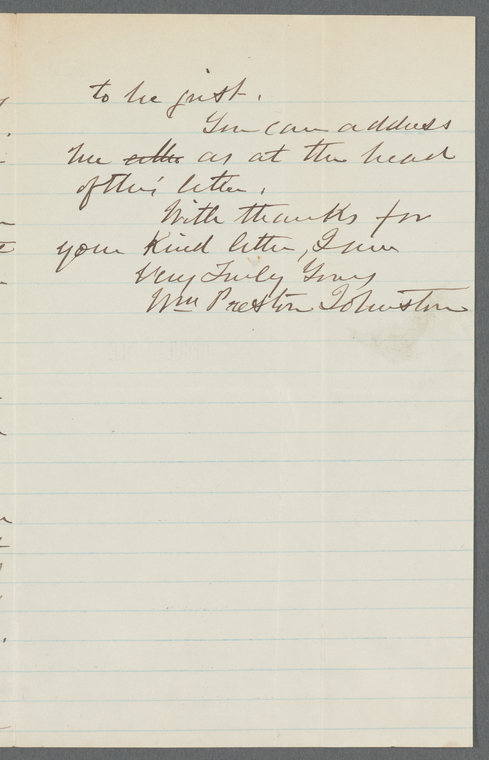 to be just.
You can address
me ~~either~~ as at the head
of this letter.
With thanks for
your kind letter, I am
Very Truly Yours
Wm Preston Johnston